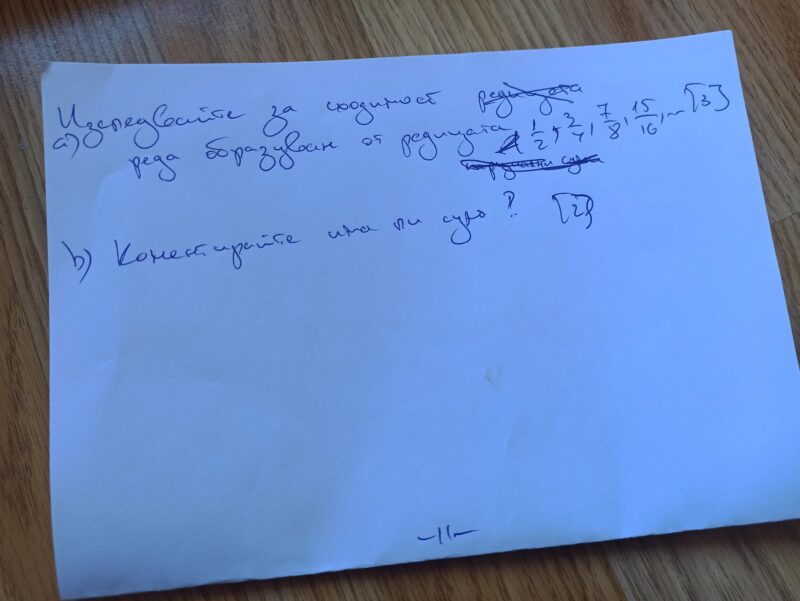 Изследвайте за сходимост редицата
а) реда образуван от редицата 1/2, 3/4, 7/8, 15/16, ... [3]
b) Коментирайте има ли сума? [2]
-11-